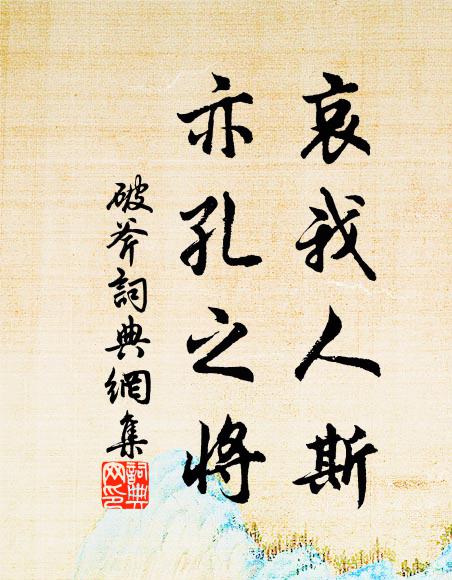 哀我人斯
亦孔之將
破斧詞典網集
詞典
网印